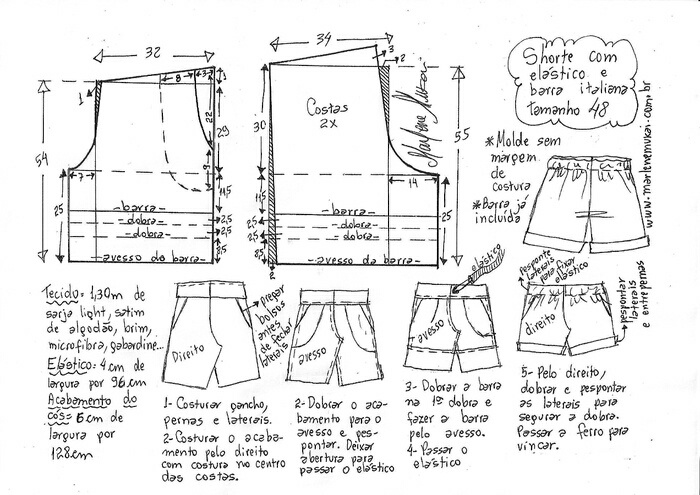 32
8
3
1
1
22
29
54
9
7
11,5
25
-barra-
-dobra-
-dobra-
-avesso da barra-
2,5
2,5
2,5
34
3
2
Costas
2X
30
55
14
11,5
25
-barra-
-dobra-
-dobra-
-avesso da barra-
2,5
2,5
2,5
2
Marlene Mukai
Shorte com
elástico e
barra italiana
tamanho 48
*Molde sem
margem
de
costura
*Barra já
incluída
www.marlenemukai.com.br
Tecido= 1,30m de
sarja light, satim
de algodão, brim,
microfibra, gabardine...
Elástico= 4cm de
largura por 96cm
Acabamento do
cós= 6cm de
largura por
128cm
Direito
Prepar
bolsos
antes
de fechar
laterais
1- Costurar gancho,
pernas e laterais.
2- Costurar o acaba-
mento pelo direito
com costura no centro
das costas.
avesso
2- Dobrar o aca-
bamento para o
avesso e pes-
pontar. Deixar
abertura para
passar o elástico
elástico
avesso
3- Dobrar a barra
na 1ª dobra e
fazer a barra
pelo avesso.
4- Passar o
elástico
pesponte
laterais
para fixar
elástico
direito
pespontar
laterais
e entrepernas
5- Pelo direito,
dobrar e pespontar
as laterais para
segurar a dobra.
Passar a ferro para
vincar.